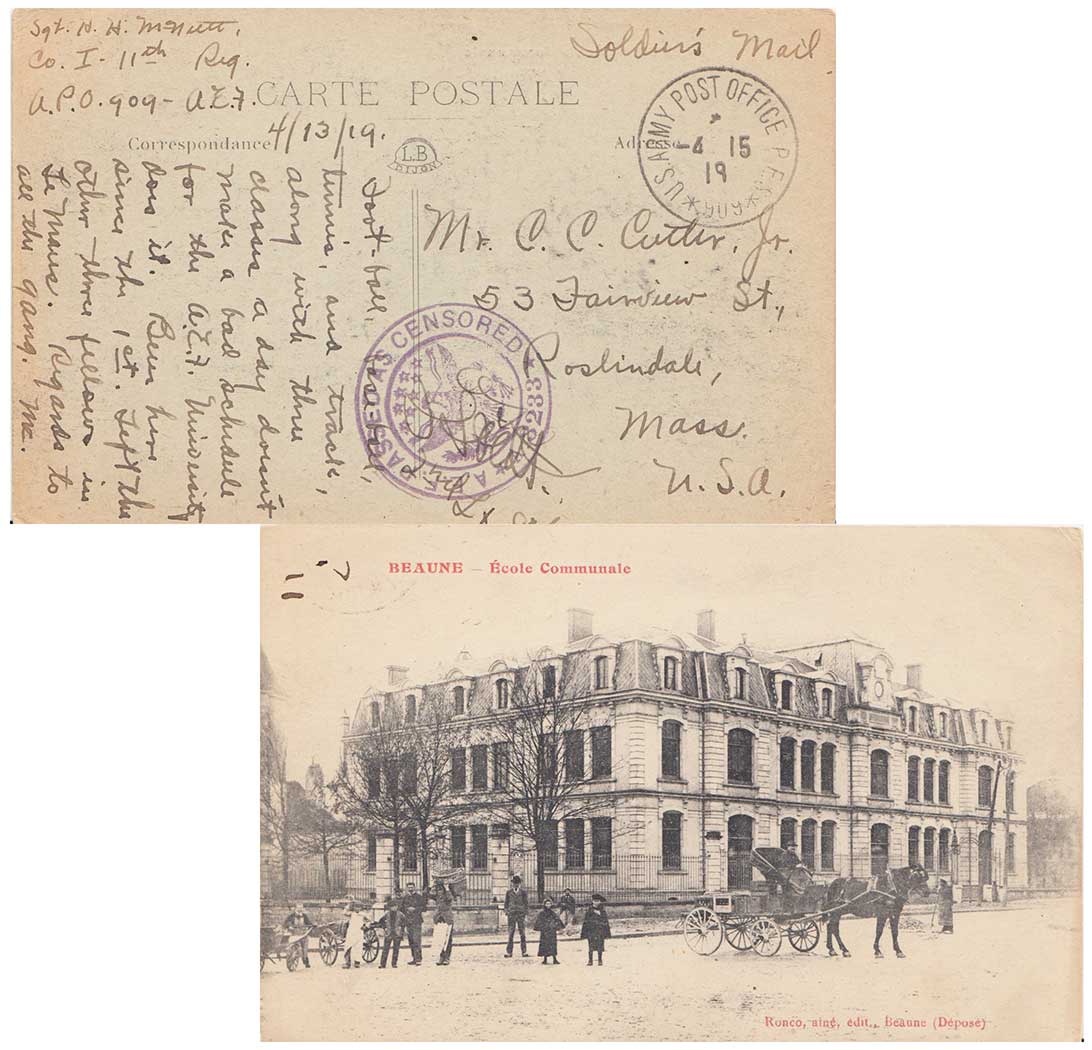 Sgt. H. H. McNutt,
Co. I - 11th Reg.
A.P.O. 909 - A.E.F.
4/13/19.
Soldier's Mail
CARTE POSTALE
Correspondance
Adresse
L.B
DIJON
U.S. ARMY POST OFFICE P.E.S. * 909 *
4 15
19
Foot-ball,
tennis, and track,
along with three
classes a day doesn't
make a bad schedule
for the A.E.F. University
does it. Been here
since the 1st. Left the
other three fellows in
Le Mans. Regards to
all the gang. Mc.
Mr. C. C. Cutler, Jr.
53 Fairview St.,
Roslindale,
Mass.
U.S.A.
PASSED AS CENSORED
A.E.F.
BEAUNE — École Communale
Ronco, aîné, édit., Beaune (Déposé)